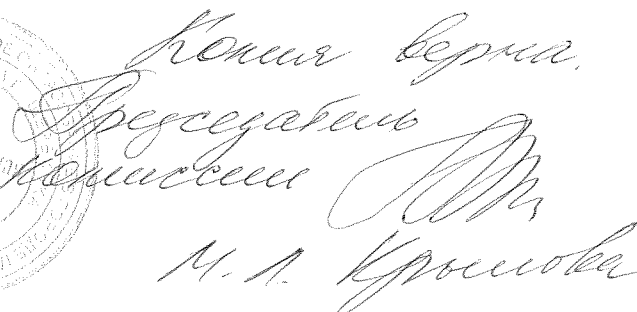 Копия верна.
Председатель
комиссии
М. Л. Крылова